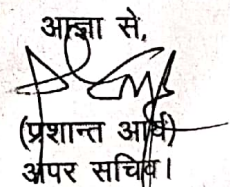 आज्ञा से,
(प्रशान्त आर्य)
अपर सचिव।